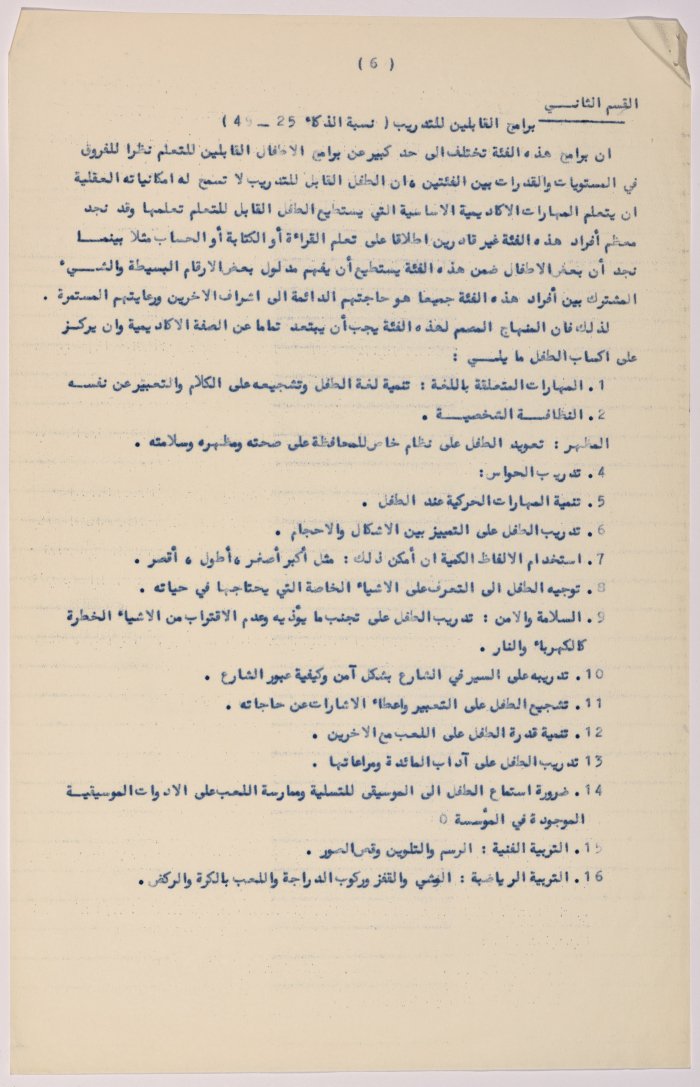 ( 6 )
القسم الثانـــي
برامج القابلين للتدريب ( نسبة الذكاء 25 ــ 49 )
ان برامج هذه الفئة تختلف الى حد كبير عن برامج الاطفال القابلين للتعلم نظرا للفروق
في المستويات والقدرات بين الفئتين ، ان الطفل القابل للتدريب لا تسمح له امكانياته العقلية
ان يتعلم المهارات الاكاديمية الاساسية التي يستطيع الطفل القابل للتعلم تعلمها وقد نجد
معظم أفراد هذه الفئة غير قادرين اطلاقا على تعلم القراءة أو الكتابة أو الحساب مثلا بينمـــا
نجد أن بعض الاطفال ضمن هذه الفئة يستطيع أن يفهم مدلول بعض الارقام البسيطة والشـــيء
المشترك بين أفراد هذه الفئة جميعا هو حاجتهم الدائمة الى اشراف الاخرين ورعايتهم المستمرة .
لذلك فان المنهاج المصمم لهذه الفئة يجب أن يبتعد تماما عن الصفة الاكاديمية وان يركـز
على اكساب الطفل ما يلـــي :
1 . المهارات المتعلقة باللغة : تنمية لغة الطفل وتشجيعه على الكلام والتعبير عن نفســه
2 . النظافــة الشخصيــة .
المظهر : تعويد الطفل على نظام خاص للمحافظة على صحته ومظهره وسلامته .
4 . تدريب الحواس :
5 . تنمية المهارات الحركية عند الطفل .
6 . تدريب الطفل على التمييز بين الاشكال والاحجام .
7 . استخدام الالفاظ الكمية ان أمكن ذلك : مثل أكبر أصغر ، أطول ، أقصر .
8 . توجيه الطفل الى التعرف على الاشياء الخاصة التي يحتاجها في حياته .
9 . السلامة والامن : تدريب الطفل على تجنب ما يؤذيه وعدم الاقتراب من الاشياء الخطرة
كالكهرباء والنار .
10 . تدريبه على السير في الشارع بشكل آمن وكيفية عبور الشارع .
11 . تشجيع الطفل على التعبير واعطاء الاشارات عن حاجاته .
12 . تنمية قدرة الطفل على اللعب مع الاخرين .
13 تدريب الطفل على آداب المائدة ومراعاتها .
14 . ضرورة استماع الطفل الى الموسيقى للتسلية وممارسة اللعب على الادوات الموسيقيــة
الموجودة في المؤسسة 0
15 . التربية الفنية : الرسم والتلوين وقص الصور .
16 . التربية الرياضية : المشي والقفز وركوب الدراجة واللعب بالكرة والركض .